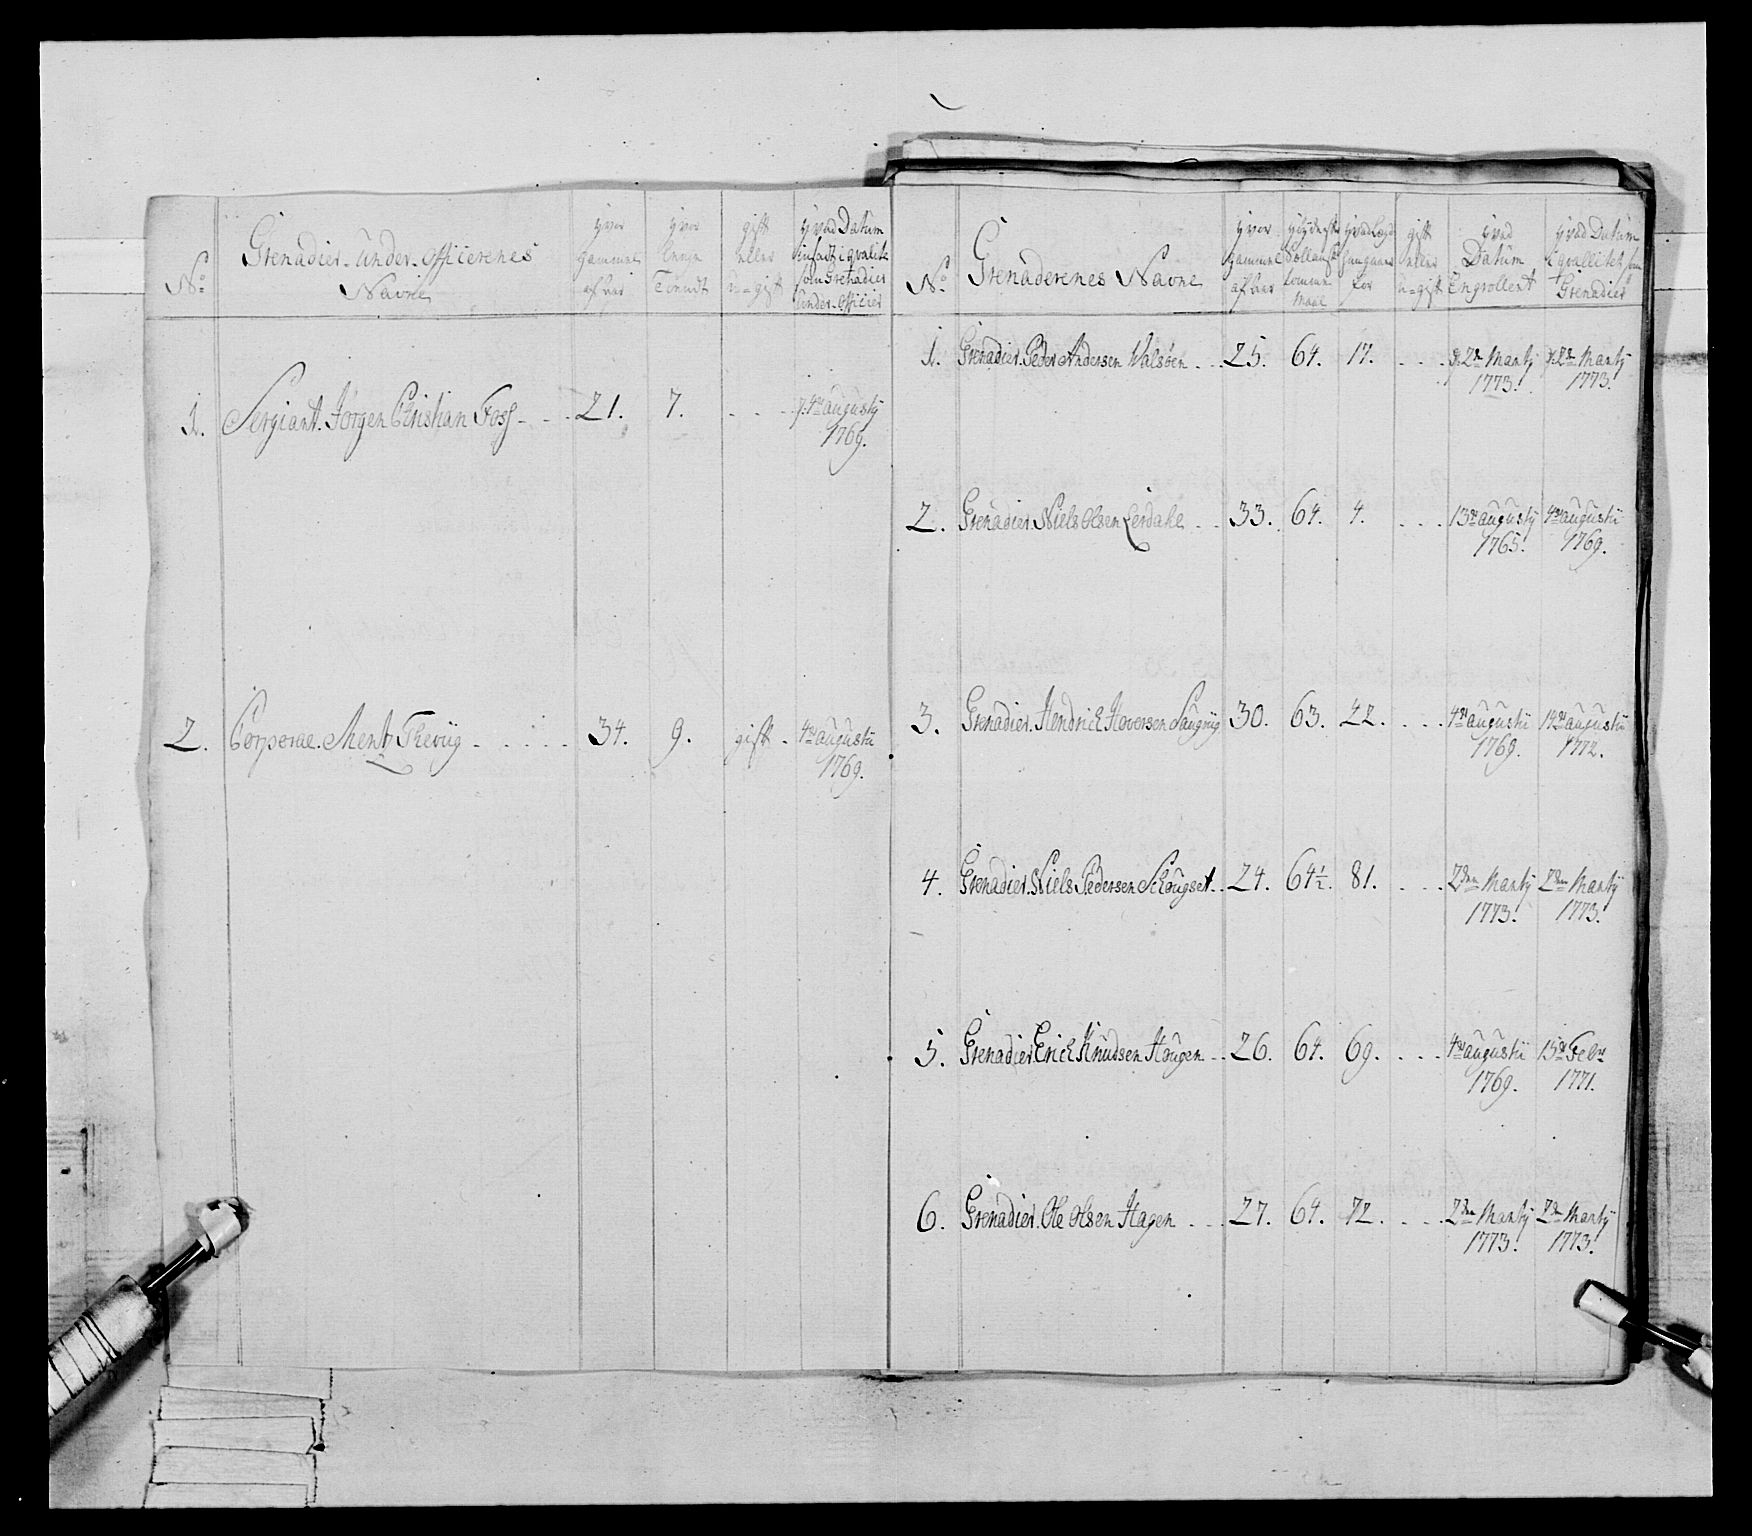 No
Grenadier-Under-Officerenes
Navne
hvor
gammel
af aar
hvor
længe
Tiendt
gift
eller
u-gift
hvad Datum
indsadt i qvalite
som Grenadier
Under-Officier
1. Sergiant. Jørgen Christian Foss - - - 21. 7. - - - d: 4de augustij
1769.
2. Corporal. Mentz Therüg - - - - - 34. 9. gift - 4de augustii
1769.
No
Grenaderenes Navne
hvor
gammel
af aar
tomme
Maal
hvad Lægd
for
gift
eller
u-gift
hvad
Datum
Engrollert
hvad Datum
i qvallitet som
Grenadier
1. Grenadier. Peder Andersen Walsøen - - - 25. 64. 17. - - - d: 2de Martij d: 2de Martij
1773. 1773.
2. Grenadier. Niels Olsen Lerdahl - - - 33. 64. 4. - - - 13de augustij 4de augustii
1765. 1769.
3. Grenadier. Hendrich Hoversen Haugrüg 30. 63. 42. - - - 4de augustii 14de augustii
1769. 1772.
4. Grenadier. Niels Pedersen Schougset - - 24. 64½. 81. - - - 2den Martij 2den Martij
1773. 1773.
5. Grenadier Erich Knudsen Haugen - - 26. 64. 69. - - - 4de augustii 15de Febr
1769. 1771.
6. Grenadier. Ole Olsen Hagen - - - 27. 64. 72. - - - 2den Martij 2den Martij
1773. 1773.